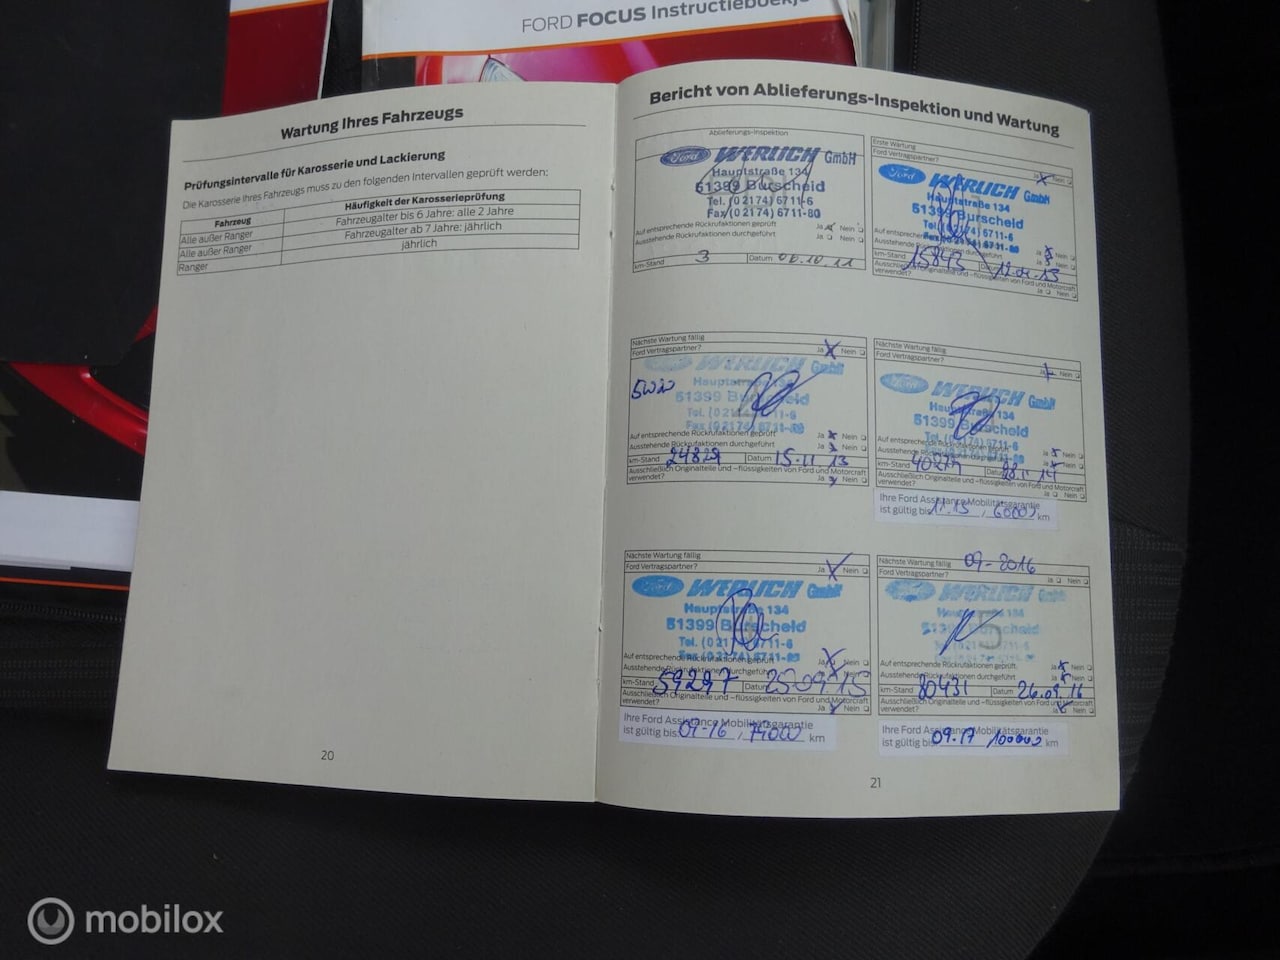 FORD FOCUS Instructieboekje
Wartung Ihres Fahrzeugs
Prüfungsintervalle für Karosserie und Lackierung
Die Karosserie Ihres Fahrzeugs muss zu den folgenden Intervallen geprüft werden:
Fahrzeug Häufigkeit der Karosserieprüfung
Alle außer Ranger Fahrzeugalter bis 6 Jahre: alle 2 Jahre
Alle außer Ranger Fahrzeugalter ab 7 Jahre: jährlich
Ranger jährlich
20
Bericht von Ablieferungs-Inspektion und Wartung
Ablieferungs-Inspektion
Ford WERLICH GmbH
Hauptstraße 134
51399 Burscheid
Tel. (0 21 74) 6711-6
Fax (0 21 74) 6711-80
Auf entsprechende Rückrufaktionen geprüft Ja Nein
Ausstehende Rückrufaktionen durchgeführt Ja Nein
km-Stand 3 Datum 06.10.11
Erste Wartung
Ford Vertragspartner? Ja Nein
Ford WERLICH GmbH
Hauptstraße 134
51399 Burscheid
Tel. (0 21 74) 6711-6
Fax (0 21 74) 6711-80
Ausstehende Ja Nein
km-Stand 15843 Datum
Ausschließlich Originalteile und -flüssigkeiten von Ford und Motorcraft
verwendet? Ja Nein
Nächste Wartung fällig
Ford Vertragspartner? Ja Nein
WERLICH GmbH
5W20
Hauptstraße 134
51399 Burscheid
Tel. (0 21 74) 6711-6
Fax (0 21 74) 6711-80
Auf entsprechende Rückrufaktionen geprüft Ja Nein
Ausstehende Rückrufaktionen durchgeführt Ja Nein
km-Stand 24829 Datum 15.11.13
Ausschließlich Originalteile und -flüssigkeiten von Ford und Motorcraft
verwendet? Ja Nein
Nächste Wartung fällig
Ford Vertragspartner? Ja Nein
Ford WERLICH GmbH
Hauptstraße 134
51399 Burscheid
Tel. (0 21 74) 6711-6
Auf entsprechende Ja Nein
Ausstehende Rückrufaktionen Ja Nein
km-Stand Datum
Ausschließlich Originalteile und -flüssigkeiten von Ford und Motorcraft
verwendet? Ja Nein
Ihre Ford Assistance Mobilitätsgarantie
ist gültig bis 11.15, 60000 km
Nächste Wartung fällig
Ford Vertragspartner? Ja Nein
Ford WERLICH GmbH
Hauptstraße 134
51399 Burscheid
Tel. (0 21 74) 6711-6
Fax (0 21 74) 6711-80
Auf entsprechende Rückrufaktionen geprüft Ja Nein
Ausstehende Rückrufaktionen durchgeführt Ja Nein
km-Stand 59297 Datum 25.09.15
Ausschließlich Originalteile und -flüssigkeiten von Ford und Motorcraft
verwendet? Ja Nein
Ihre Ford Assistance Mobilitätsgarantie
ist gültig bis: 09-16, km
Nächste Wartung fällig 09-2016
Ford Vertragspartner? Ja Nein
WERLICH GmbH
Hauptstraße 134
51399 Burscheid
Auf entsprechende Rückrufaktionen geprüft Ja Nein
Ausstehende Rückrufaktionen durchgeführt Ja Nein
km-Stand 80431 Datum 26.09.16
Ausschließlich Originalteile und -flüssigkeiten von Ford und Motorcraft
verwendet? Ja Nein
Ihre Ford Assistance Mobilitätsgarantie
ist gültig bis: 09.17 100000 km
21
mobilox